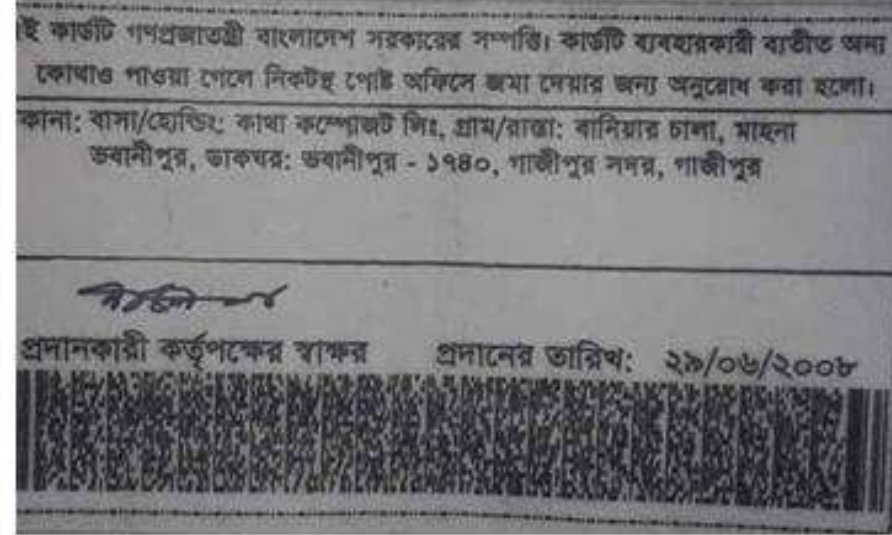 ই কার্ডটি গণপ্রজাতন্ত্রী বাংলাদেশ সরকারের সম্পত্তি। কার্ডটি ব্যবহারকারী ব্যতীত অন্য
কোথাও পাওয়া গেলে নিকটস্থ পোষ্ট অফিসে জমা দেয়ার জন্য অনুরোধ করা হলো।
কানা: বাসা/হোল্ডিং: কাথা কম্পোজিট লিঃ, গ্রাম/রাস্তা: বানিয়ার চালা, মাহনা
ভবানীপুর, ডাকঘর: ভবানীপুর - ১৭৪০, গাজীপুর সদর, গাজীপুর
প্রদানকারী কর্তৃপক্ষের স্বাক্ষর প্রদানের তারিখ: ২৯/০৬/২০০৮